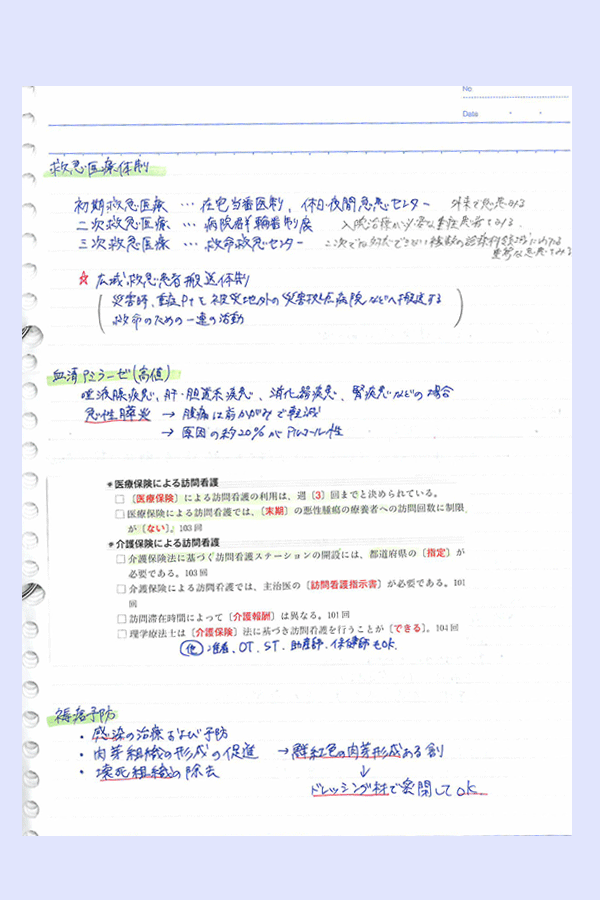 No
Date
救急医療体制
初期救急医療 … 在宅当番医制、休日・夜間急患センター 外来で急患みる
二次救急医療 … 病院群輪番制度 入院治療が必要な重症患者でみる
三次救急医療 … 救命救急センター 二次では対応できない複数の診療科領域にわたる
重篤な患者でみる
☆ 広域救急患者搬送体制
災害時、重症Ptを被災地外の災害拠点病院などへ搬送する
救命のための一連の活動
血清アミラーゼ(高値)
唾液腺疾患、肝・胆道系疾患、消化器疾患、腎疾患などの場合
急性膵炎 → 腹痛は前かがみで軽減
→ 原因の約20%がアルコール性
＊医療保険による訪問看護
□〔医療保険〕による訪問看護の利用は、週〔3〕回までと決められている。
□医療保険による訪問看護では、〔末期〕の悪性腫瘍の療養者への訪問回数に制限
が〔ない〕。103回
＊介護保険による訪問看護
□介護保険法に基づく訪問看護ステーションの開設には、都道府県の〔指定〕が
必要である。103回
□介護保険による訪問看護では、主治医の〔訪問看護指示書〕が必要である。101
回
□訪問滞在時間によって〔介護報酬〕は異なる。101回
□理学療法士は〔介護保険〕法に基づき訪問看護を行うことが〔できる〕。104回
他 准看、OT、ST、助産師、保健師もOK.
褥瘡予防
・感染の治療および予防
・肉芽組織の形成の促進 → 鮮紅色の肉芽形成ある創
・壊死組織の除去 ↓
ドレッシング材で密閉してOK.